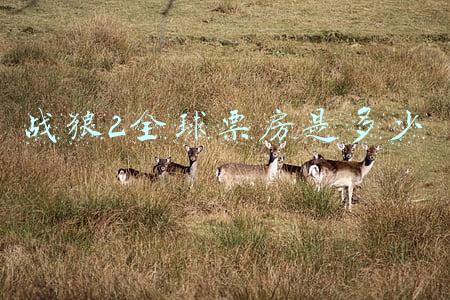 战狼2全球票房是多少